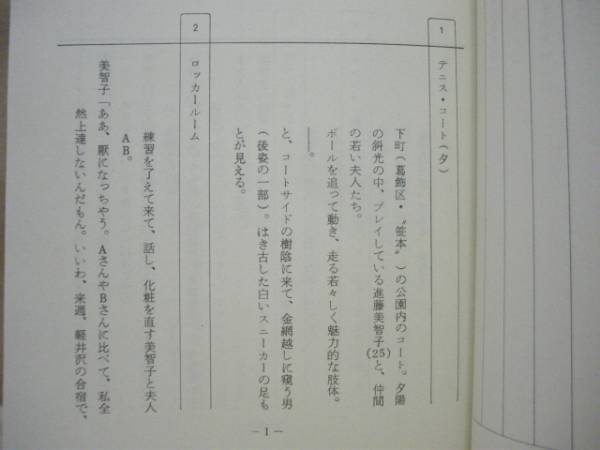 1
テニス・コート(夕)
下町(葛飾区・〝笹本〟)の公園内のコート。夕陽
の斜光の中、プレイしている進藤美智子(25)と、仲間
の若い夫人たち。
ボールを追って動き、走る若々しく魅力的な肢体。
――。
と、コートサイドの樹陰に来て、金網越しに窺う男
(後姿の一部)。はき古した白いスニーカーの足も
とが見える。
2
ロッカールーム
練習を了えて来て、話し、化粧を直す美智子と夫人
AB。
美智子「ああ、厭になっちゃう。AさんやBさんに比べて、私全
然上達しないんだもん。いいわ、来週、軽井沢の合宿で、
—1—